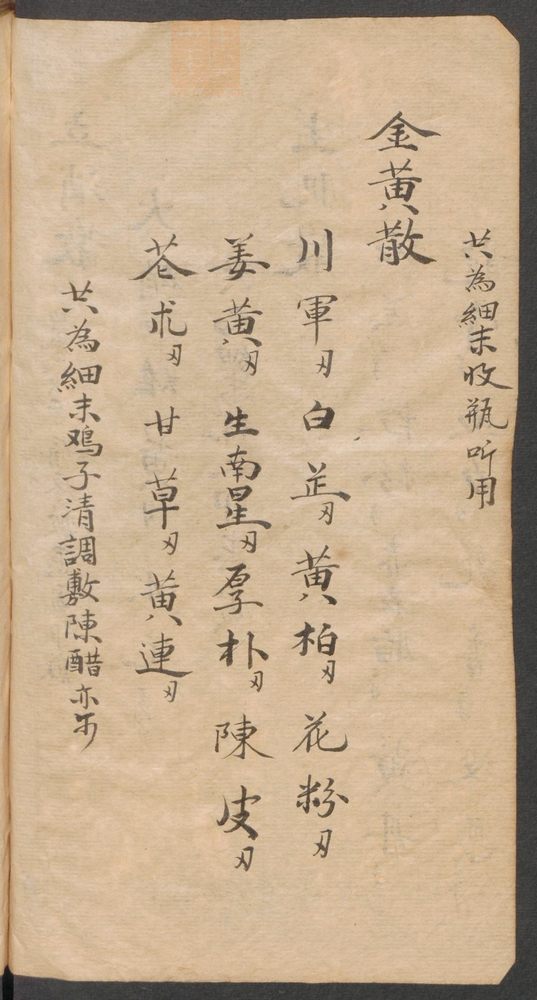 共為細末收瓶听用
金黄散
川軍刄 白芷刄 黄柏刄 花粉刄
姜黄刄 生南星刄 厚朴刄 陳皮刄
苍朮刄 甘草刄 黄連刄
共為細末鳮子清調敷陳醋亦可